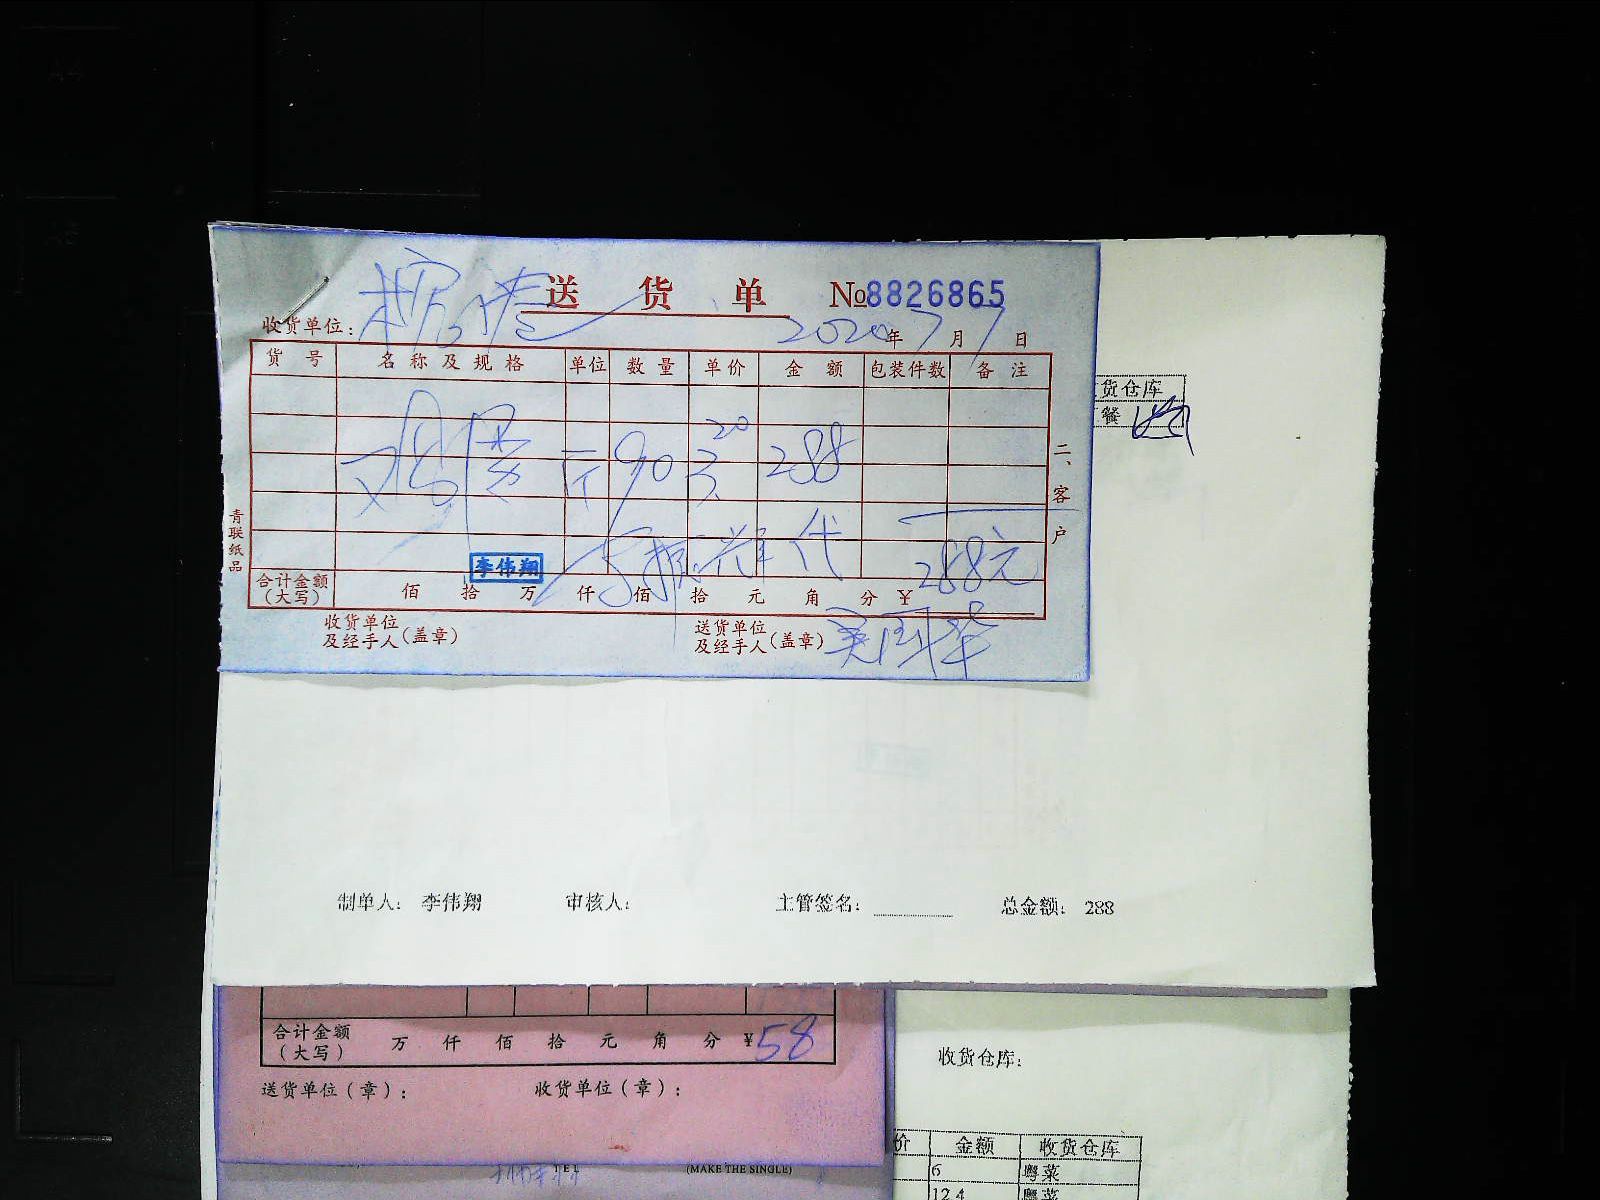 送货单 №8826865
收货单位：
2020年7月7日
货号 名称及规格 单位 数量 单价 金额 包装件数 备注
鸡蛋 斤 90 3.20 288
288元
李伟翔
合计金额（大写） 佰 拾 万 仟 佰 拾 元 角 分 ¥
收货单位及经手人（盖章）
送货单位及经手人（盖章）
青联纸品
二、客户
货仓库
餐
制单人： 李伟翔 审核人： 主管签名： 总金额： 288
合计金额（大写） 万 仟 佰 拾 元 角 分 ¥58
送货单位（章）： 收货单位（章）：
TEL (MAKE THE SINGLE)
收货仓库：
价 金额 收货仓库
6 粤菜
12.4 粤菜